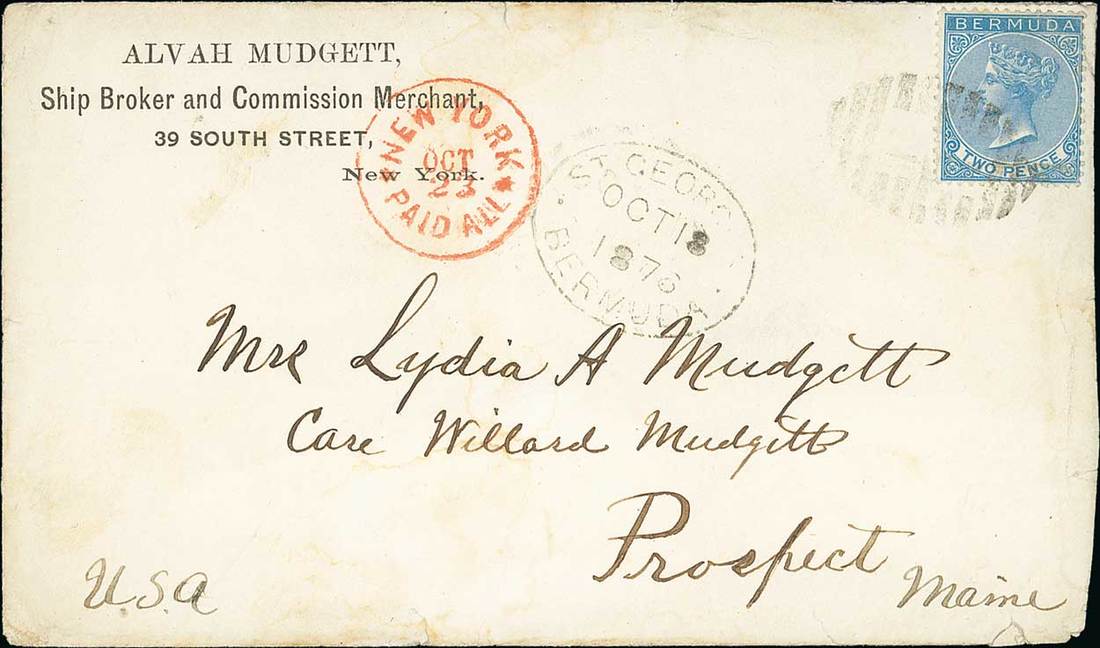 ALVAH MUDGETT,
Ship Broker and Commission Merchant,
39 SOUTH STREET,
New York.
NEW YORK
OCT
23
PAID ALL
ST GEORG
OCT 18
1876
BERMUDA
BERMUDA
TWO PENCE
Mrs Lydia A Mudgett
Care Willard Mudgett
Prospect
Maine
U.S.A